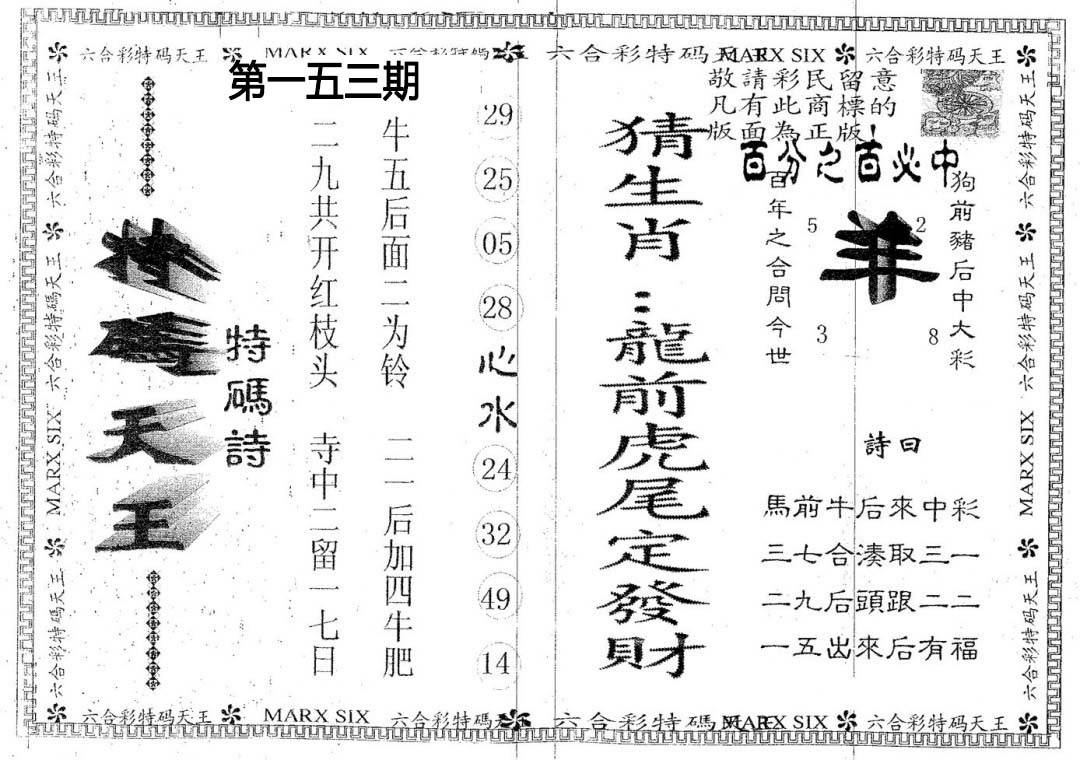 六合彩特码天王 MARX SIX 六合彩特碼 六合彩特码天王 MARX SIX 六合彩特码天王
第一五三期
敬請彩民留意
凡有此商標的
版面為正版!
百分之百必中
狗前豬后中大彩
羊
5 2
3 8
百年之合問今世
詩曰
馬前牛后來中彩
三七合湊取三一
二九后頭跟二二
一五出來后有福
猜生肖:龍前虎尾定發財
29
25
05
28
心水
24
32
49
14
牛五后面二为铃 二一后加四牛肥
二九共开红枝头 寺中二留一七日
特碼詩
特碼天王
六合彩特码天王 六合彩特碼天王 MARX SIX 六合彩特码天王
六合彩特码天王 六合彩特碼天王 MARX SIX 六合彩特码天王
六合彩特码天王 MARX SIX 六合彩特碼天 六合彩特碼 MARX SIX 六合彩特码天王